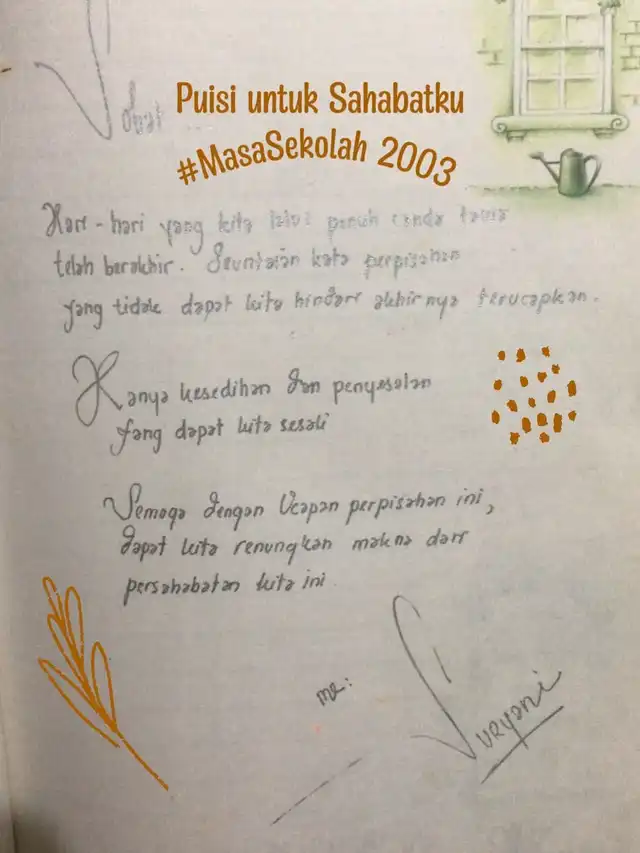 Puisi untuk Sahabatku
#MasaSekolah 2003
Sobat ...
Hari-hari yang kita lalui penuh canda tawa
telah berakhir. Seuntaian kata perpisahan
yang tidak dapat kita hindari akhirnya terucapkan.
Hanya kesedihan dan penyesalan
yang dapat kita sesali
Semoga dengan Ucapan perpisahan ini,
dapat kita renungkan makna dari
persahabatan kita ini.
me:
Suryani